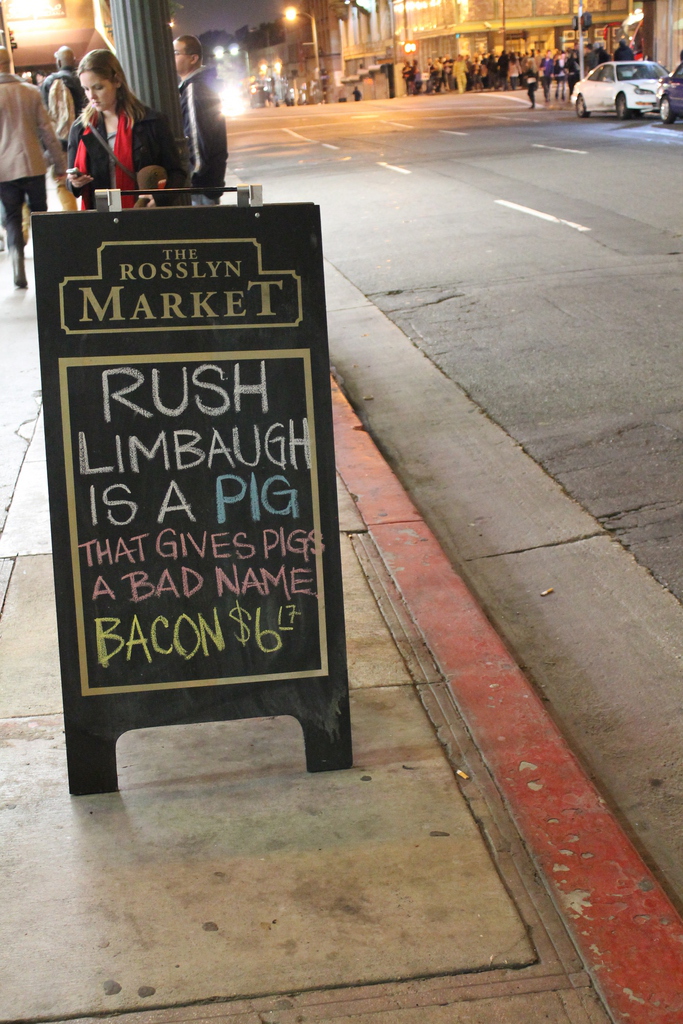 THE
ROSSLYN
MARKET
RUSH
LIMBAUGH
IS A PIG
THAT GIVES PIGS
A BAD NAME
BACON $6.17